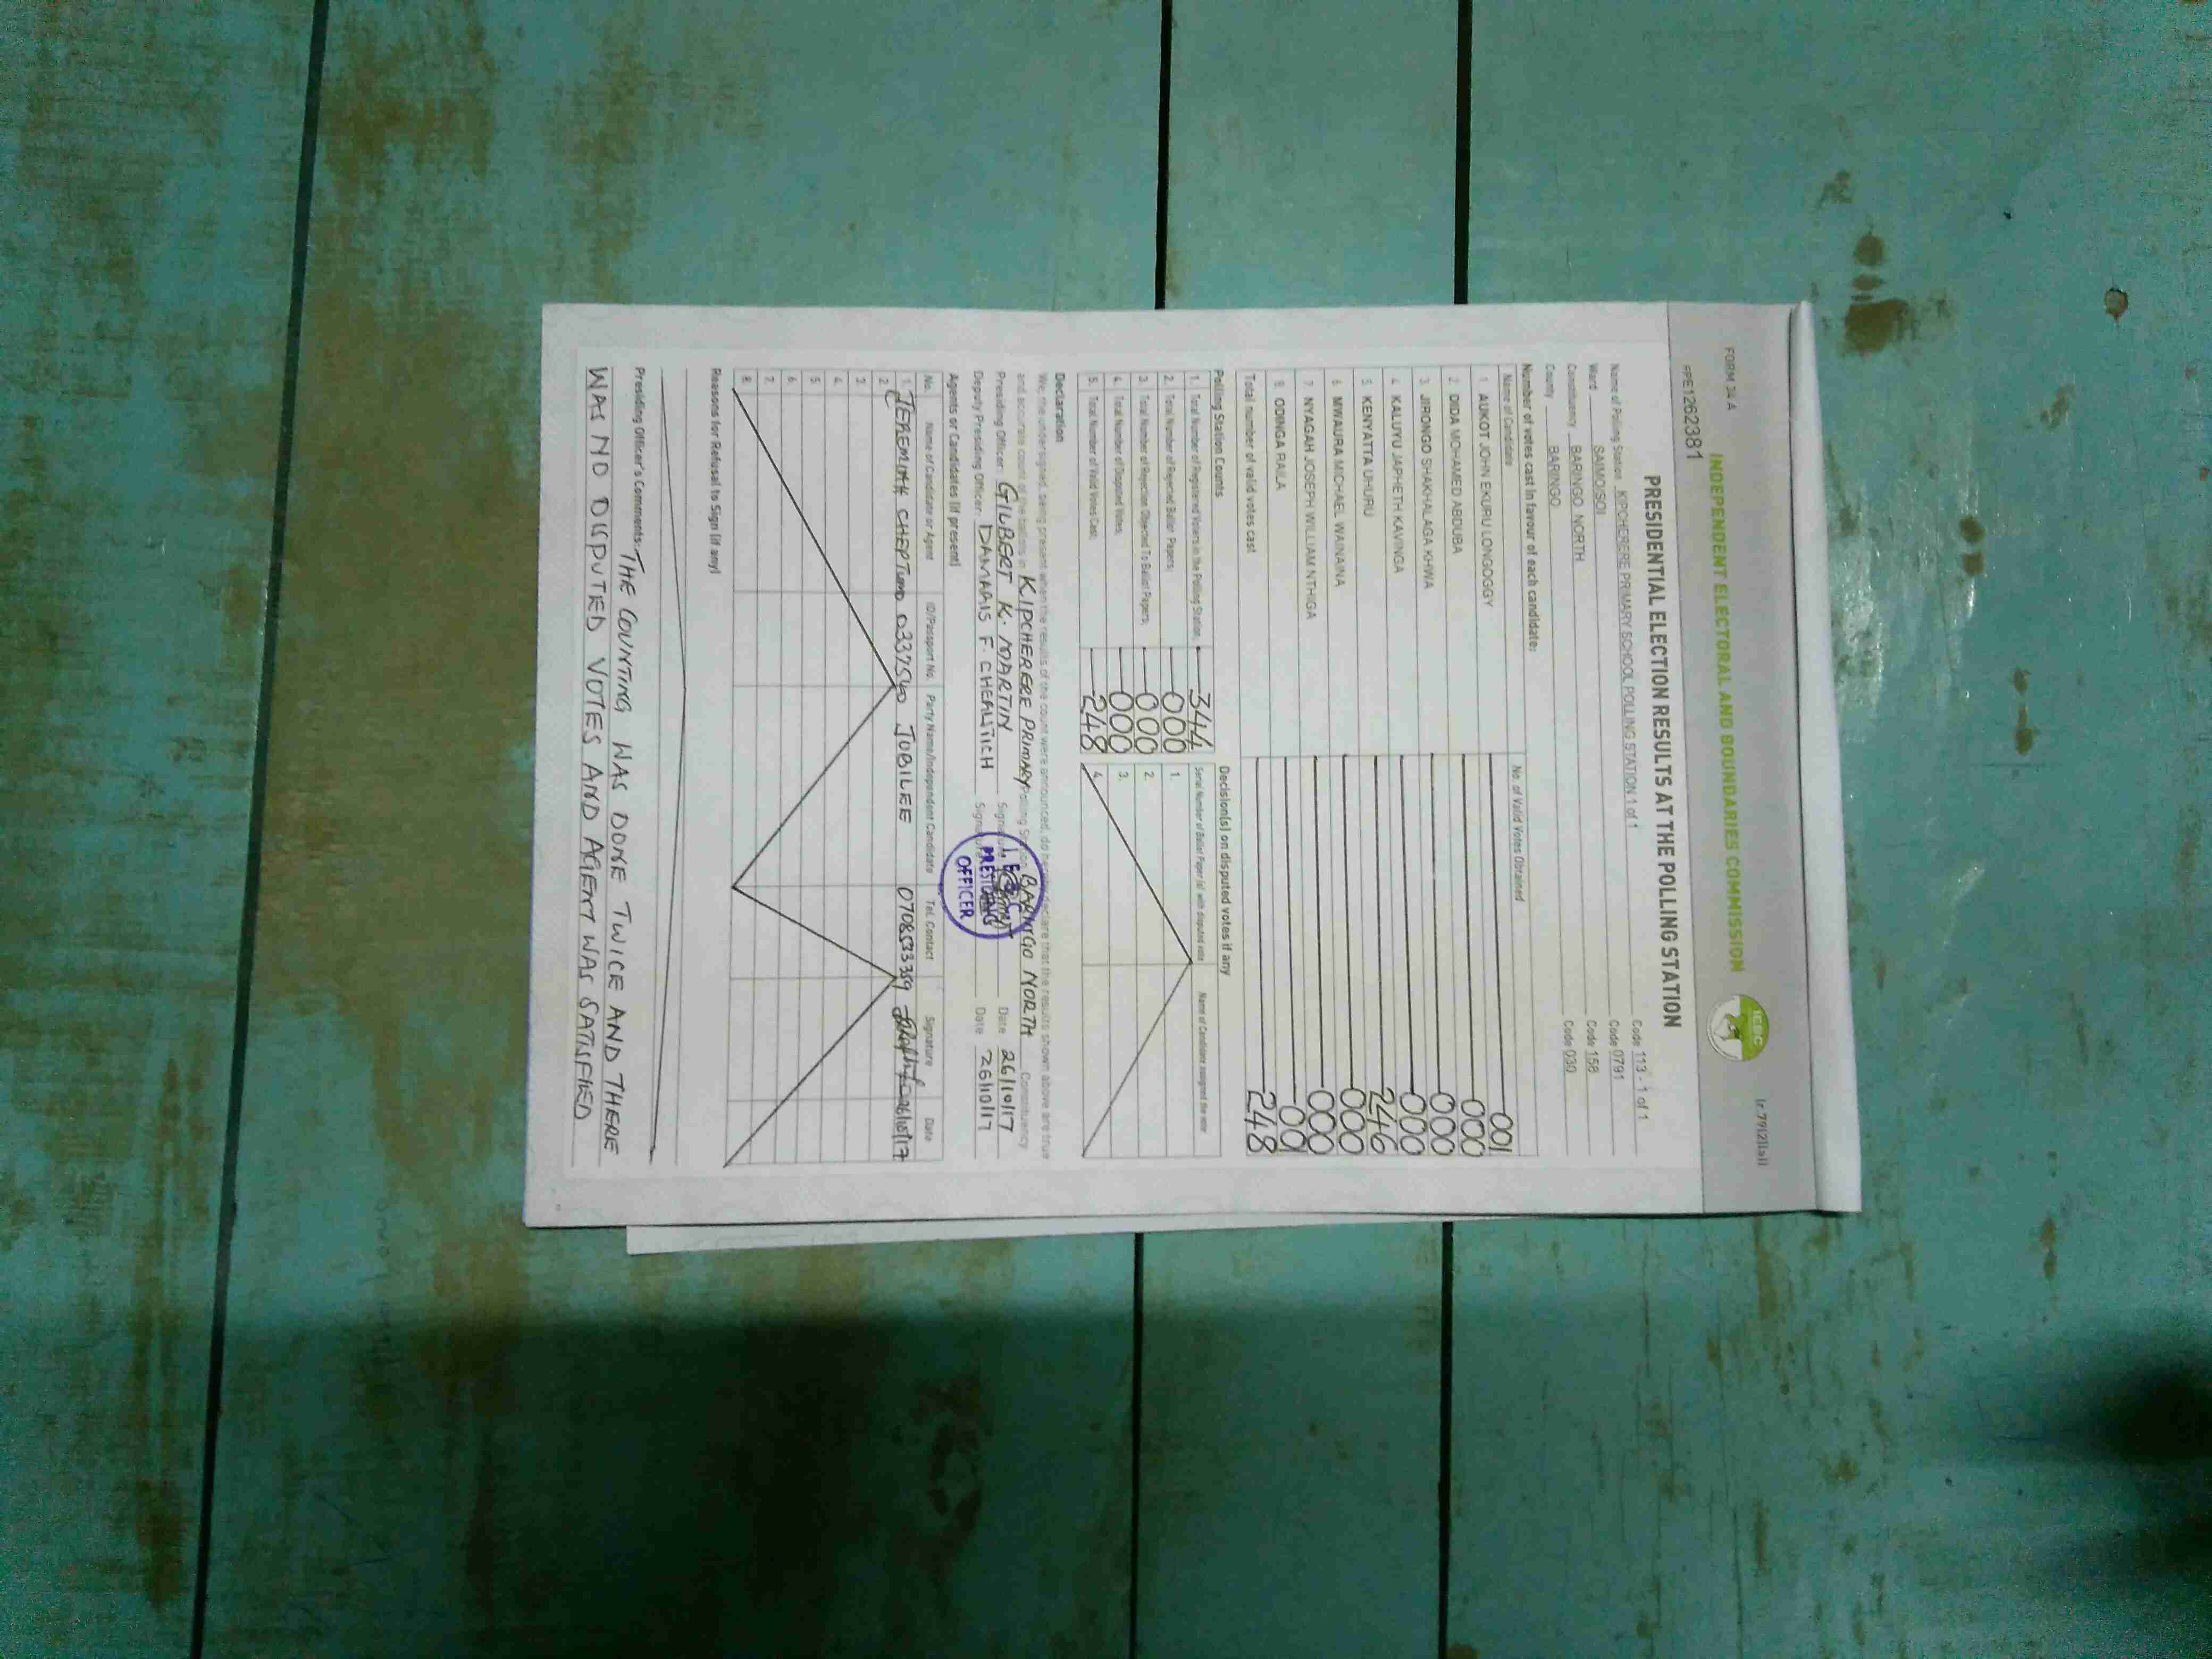 FORM 34 A
Ir 79(2)(a)
INDEPENDENT ELECTORAL AND BOUNDARIES COMMISSION
IEBC
PPE1262381
PRESIDENTIAL ELECTION RESULTS AT THE POLLING STATION
Name of Polling Station KIPCHERERE PRIMARY SCHOOL POLLING STATION 1 of 1 Code 113 - 1 of 1
Ward SAIMO/SOI Code 0791
Constituency BARINGO NORTH Code 158
County BARINGO Code 030
Number of votes cast in favour of each candidate:
Name of Candidate No. of Valid Votes Obtained
1 AUKOT JOHN EKURU LONGOGGY 001
2 DIDA MOHAMED ABDUBA 000
3. JIRONGO SHAKHALAGA KHWA 000
4 KALUYU JAPHETH KAVINGA 000
5 KENYATTA UHURU 246
6 MWAURA MICHAEL WAINAINA 000
7 NYAGAH JOSEPH WILLIAM NTHIGA 000
8. ODINGA RAILA 001
Total number of valid votes cast 248
Polling Station Counts
1. Total Number of Registered Voters in the Polling Station 344
2. Total Number of Rejected Ballot Papers 000
3. Total Number of Rejection Objected To Ballot Papers 000
4. Total Number of Disputed Votes 000
5. Total Number of Valid Votes Cast 248
Decision(s) on disputed votes if any
Serial Number of Ballot Paper (s) with disputed vote Name of Candidate assigned the vote
1.
2.
3.
4.
Declaration
We, the undersigned, being present when the results of the count were announced, do hereby declare that the results shown above are true
and accurate count of the ballots in KIPCHERERE PRIMARY Polling Station BARINGO NORTH Constituency
Presiding Officer: GILBERT K. MARTIN Signature Date 26/10/17
Deputy Presiding Officer: DAMARIS F. Signature Date 26/10/17
I.E.B.C
PRESIDING
OFFICER
Agents or Candidates (if present)
No. Name of Candidate or Agent ID/Passport No. Party Name/Independent Candidate Tel. Contact Signature Date
1. JEREMIAH 0337540 JUBILEE 26/10/17
2.
3.
4.
5.
6.
7.
8.
Reasons for Refusal to Sign (if any)
Presiding Officer's Comments: THE COUNTING WAS DONE TWICE AND THERE
WAS NO DISPUTED VOTES AND AGENT WAS SATISFIED